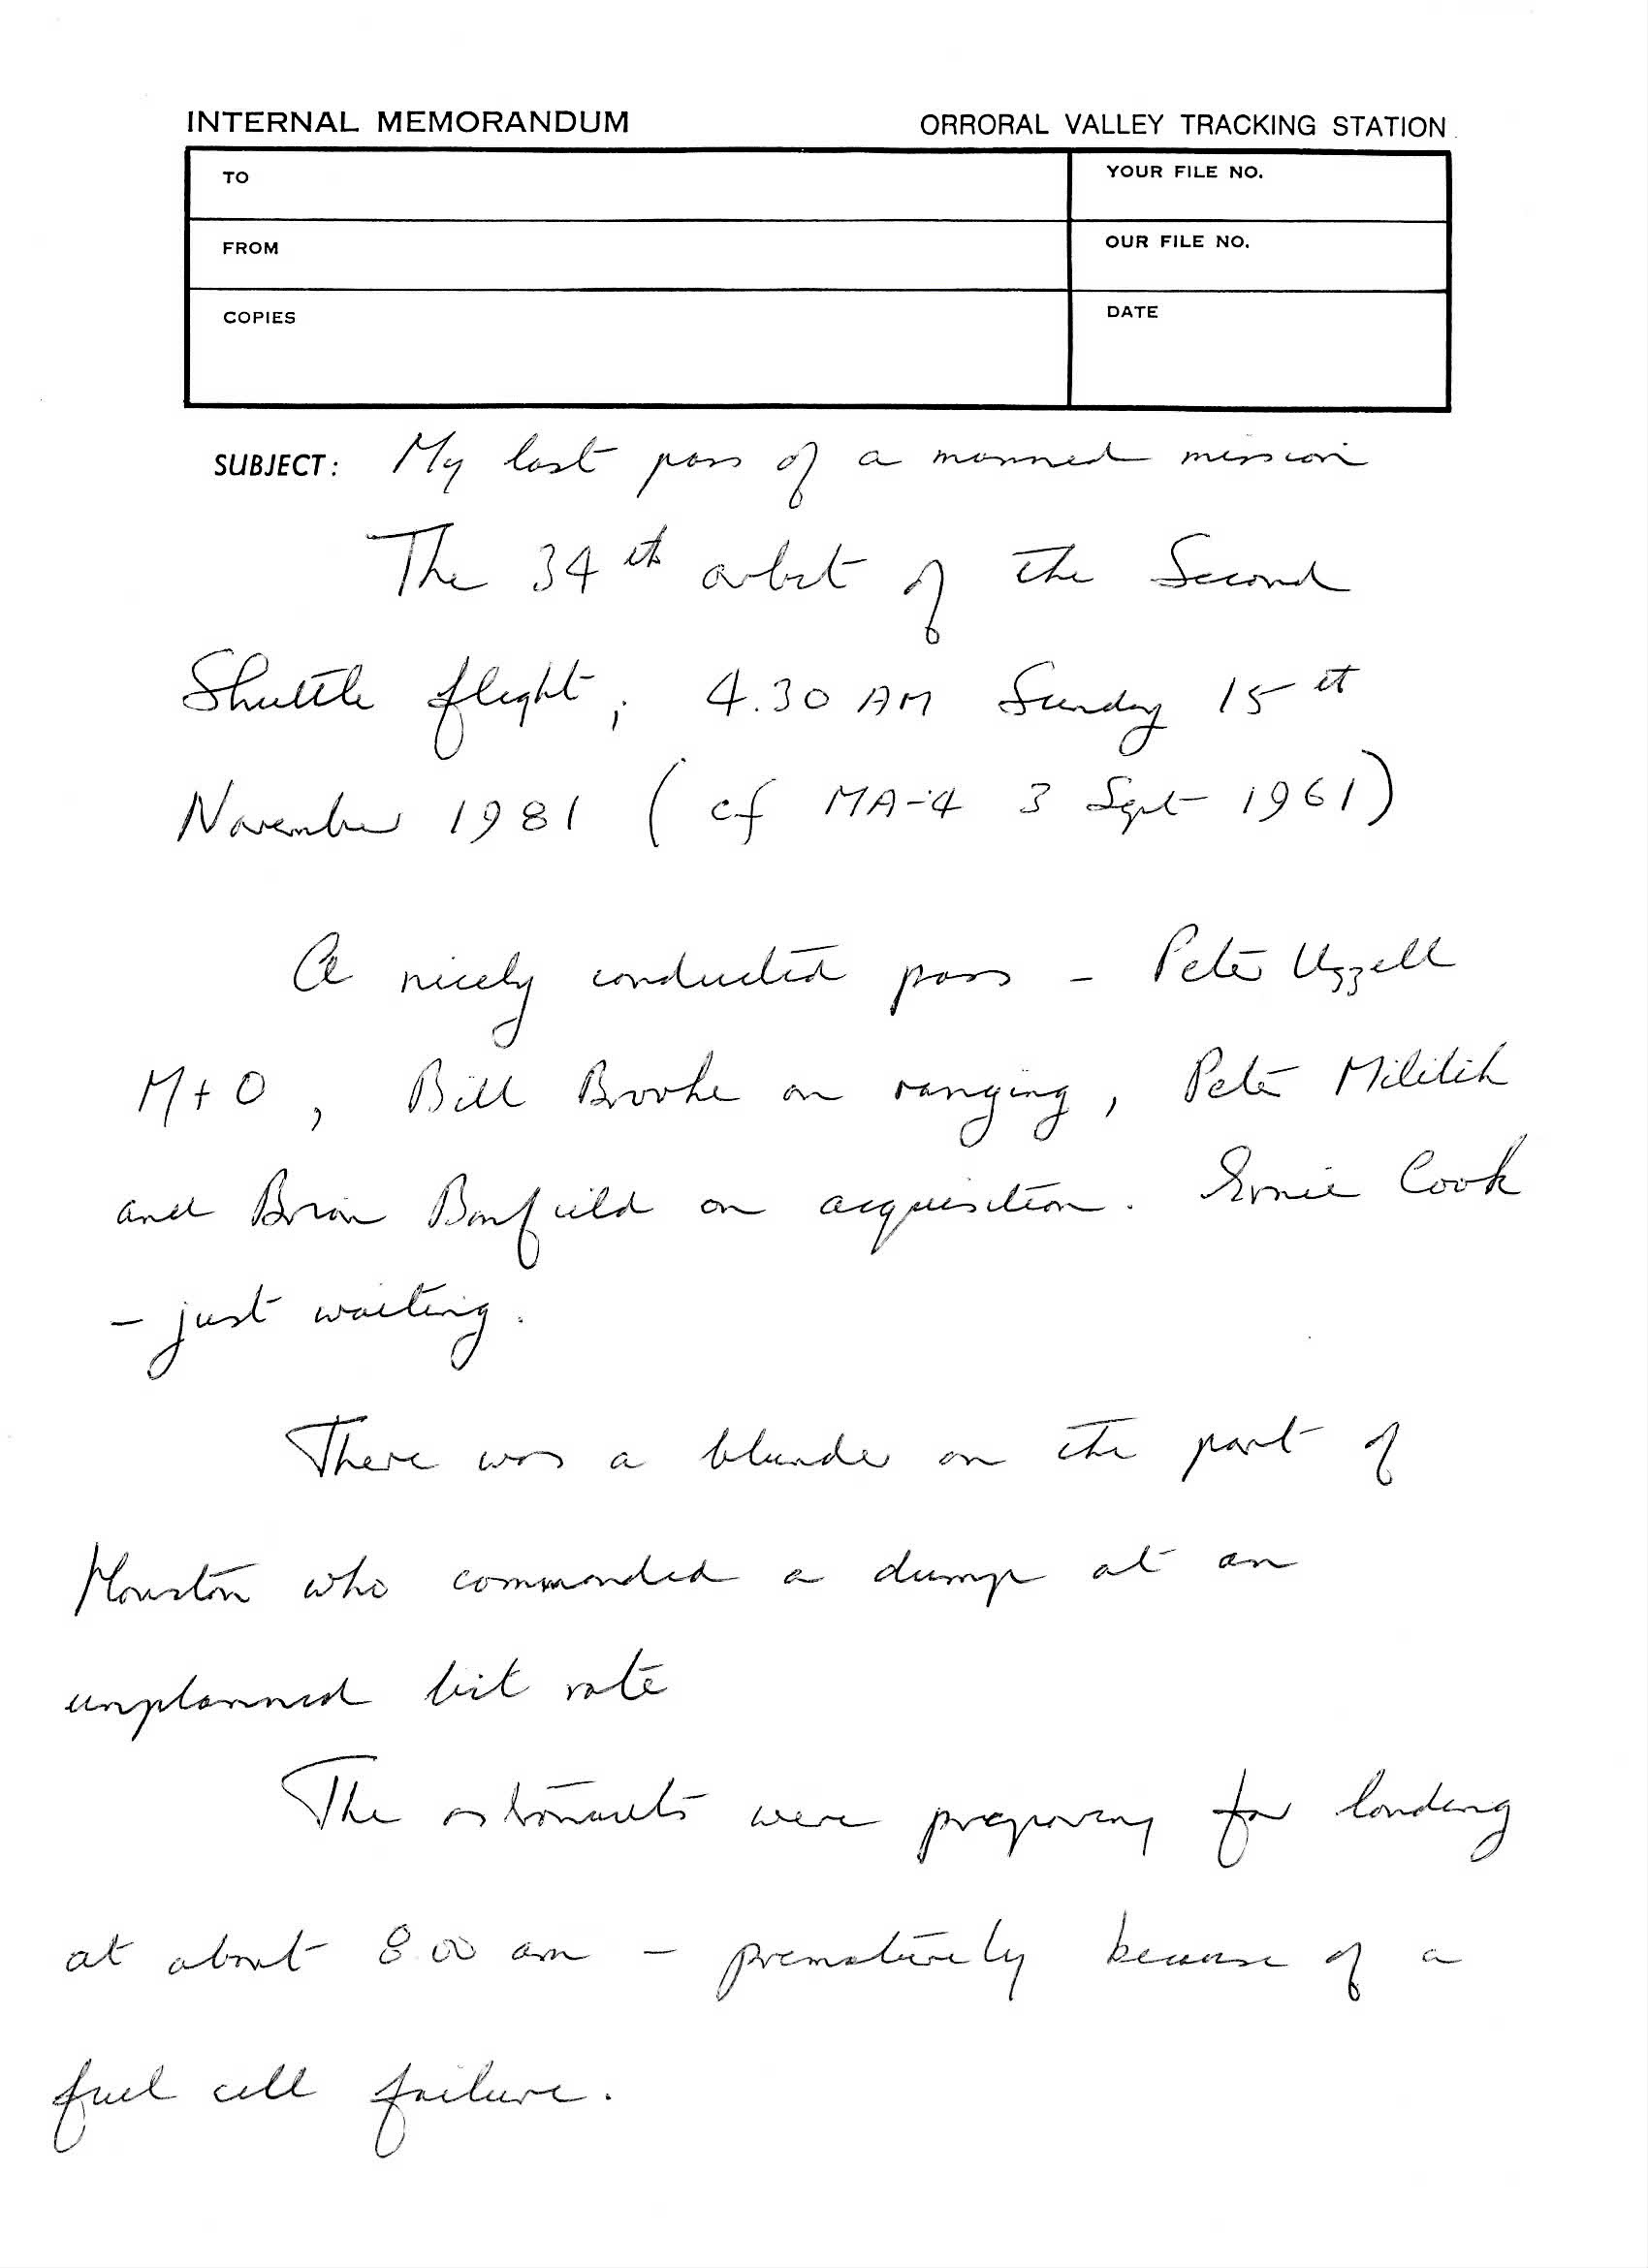 INTERNAL MEMORANDUM ORRORAL VALLEY TRACKING STATION
TO YOUR FILE NO.
FROM OUR FILE NO.
COPIES DATE
SUBJECT: My last pass of a manned mission
The 34th orbit of the Second
Shuttle flight, 4.30 AM Sunday 15th
November 1981 (cf MA-4 3 Sept 1961)
A nicely conducted pass - Peter Uzzell
M+O, Bill Brooke on ranging, Peter
and Brian Banfield on acquisition. Ernie Cook
- just waiting.
There was a blunder on the part of
Houston who commanded a dump at an
unplanned bit rate
The astronauts were preparing for landing
at about 8.00 am - prematurely because of a
fuel cell failure.